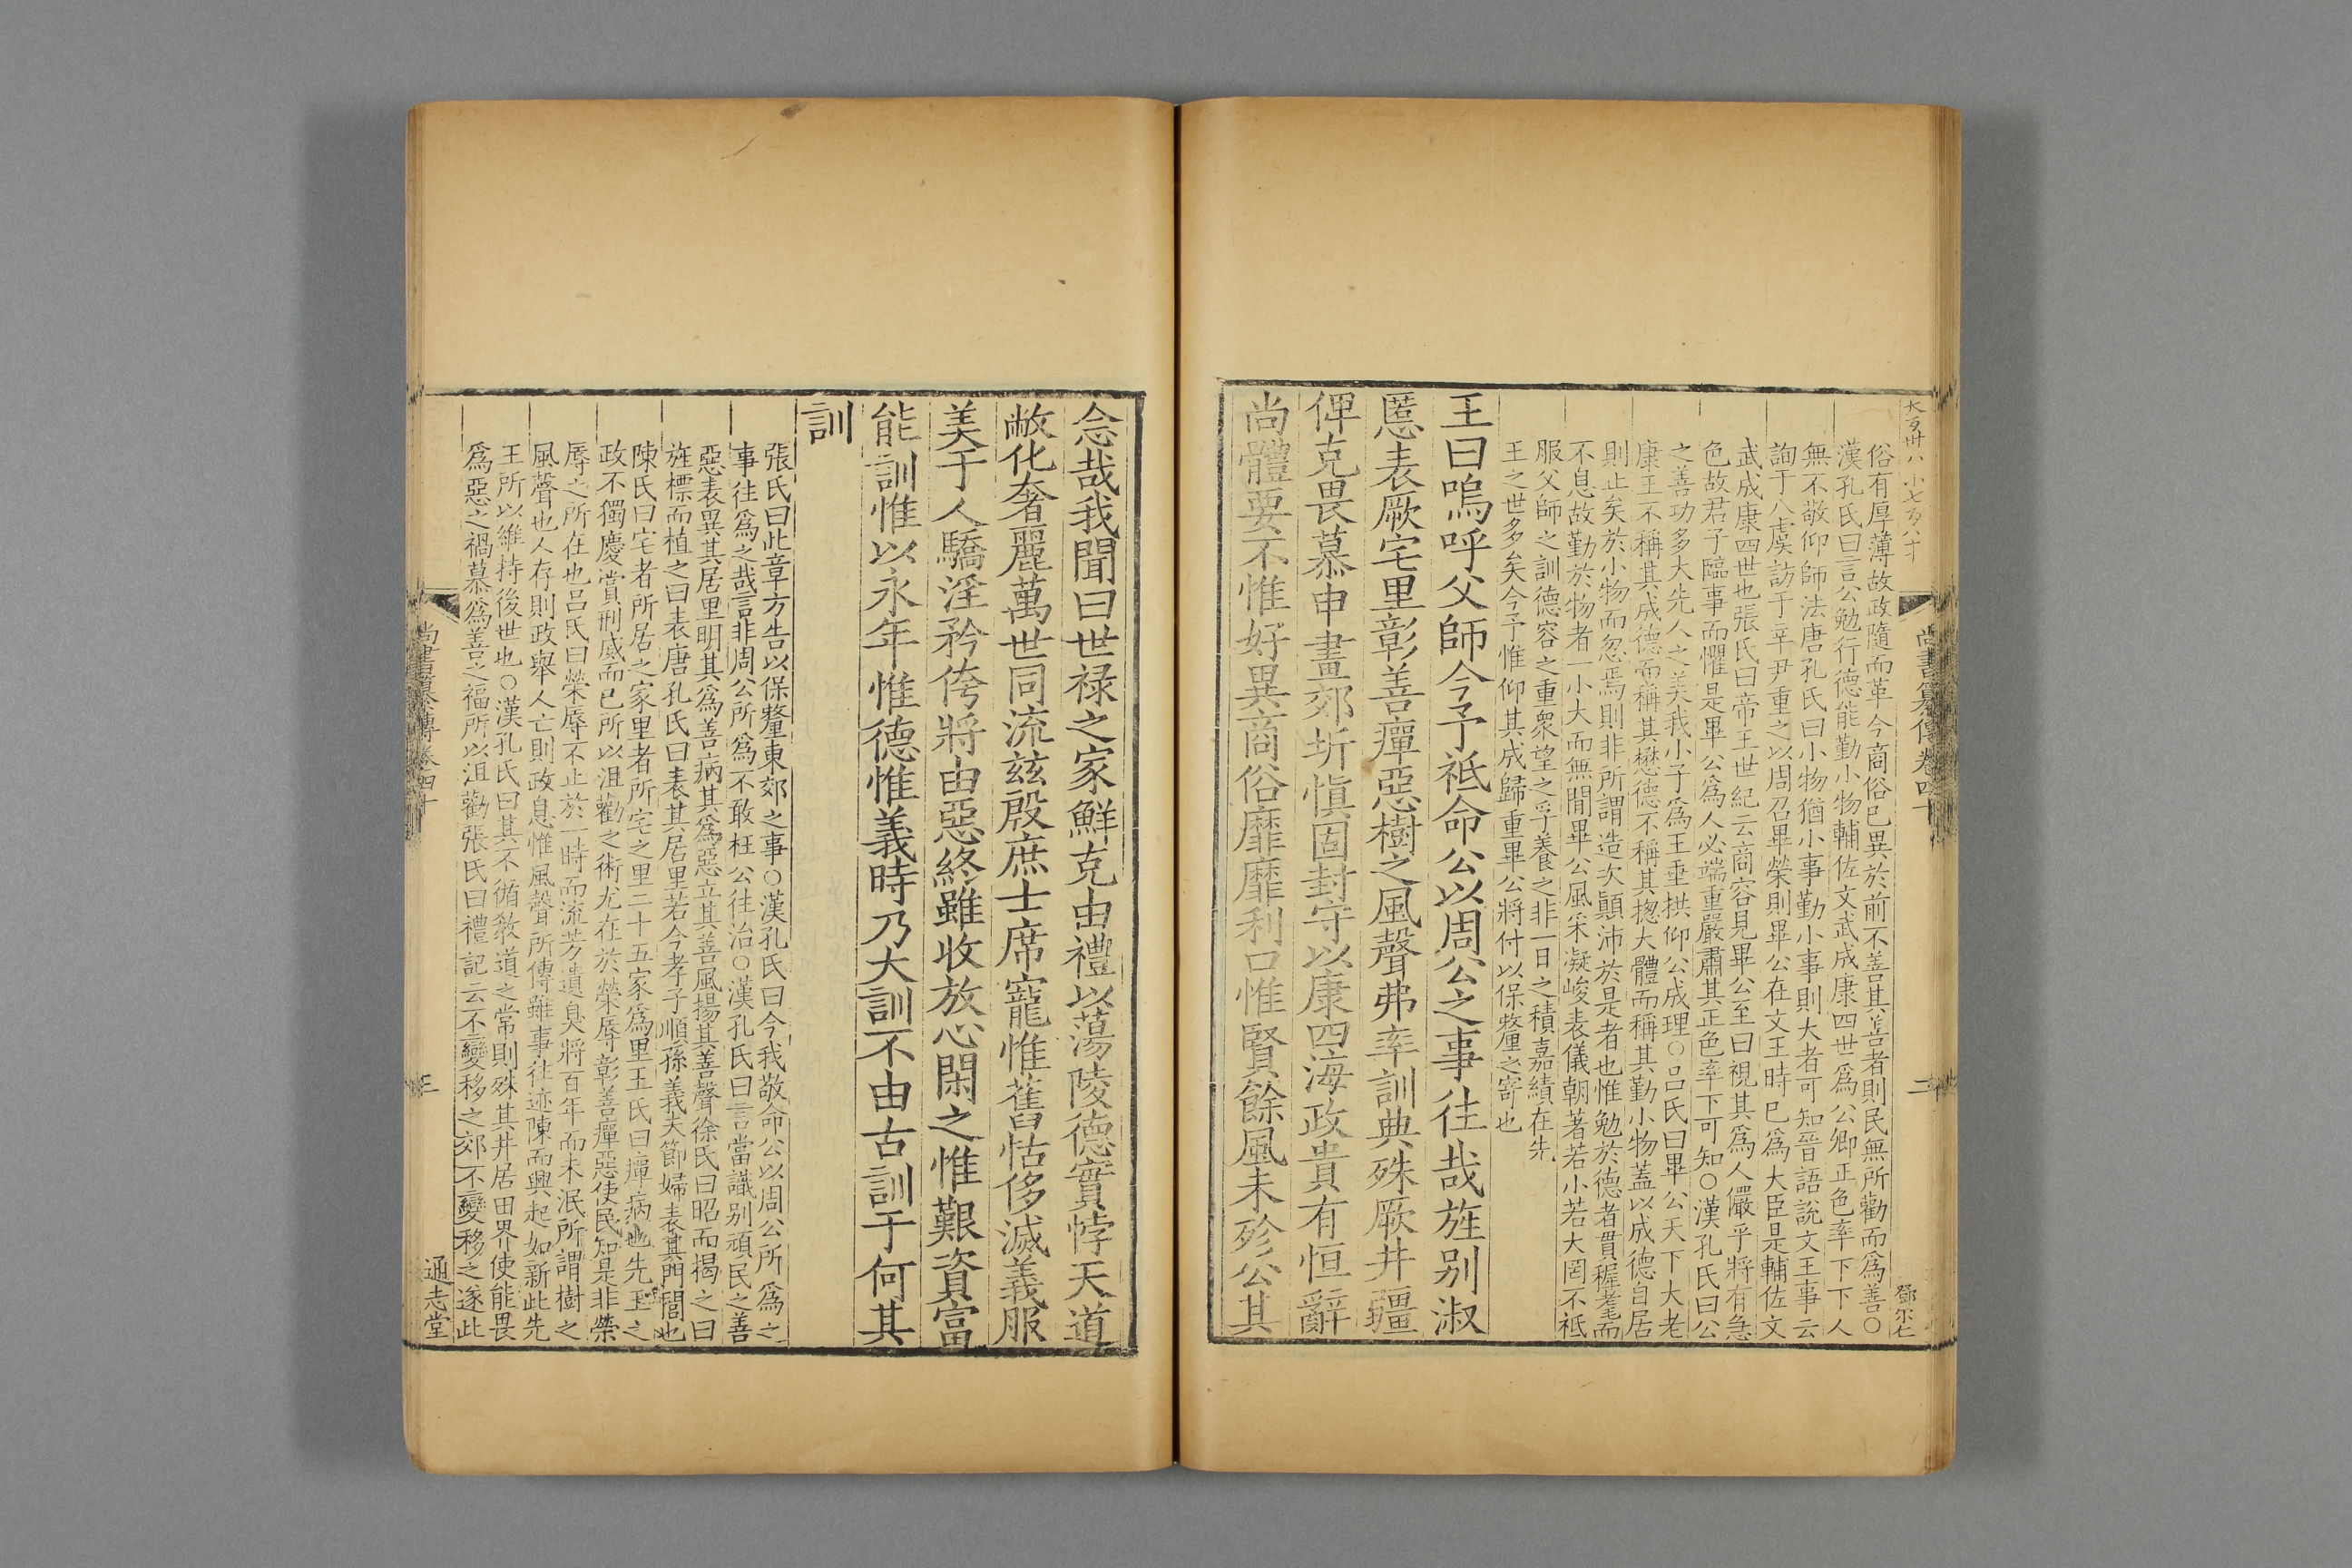 大百卅八 小七百八十
鄧尔仁
尚書纂傳卷四十
二
俗有厚薄故政隨而革今商俗已異於前不善其善者則民無所勸而爲善○
漢孔氏曰言公勉行德能勤小物輔佐文武成康四世爲公卿正色率下下人
無不敬仰師法唐孔氏曰小物猶小事勤小事則大者可知晉語說文王事云
詢于八虞訪于辛尹重之以周召畢榮則畢公在文王時已爲大臣是輔佐文
武成康四世也張氏曰帝王世紀云商容見畢公至曰視其爲人儼乎將有急
色故君子臨事而懼是畢公爲人必端重嚴肅其正色率下可知○漢孔氏曰公
之善功多大先人之美我小子爲王垂拱仰公成理○呂氏曰畢公天下大老
康王不稱其成德而稱其懋德不稱其揔大體而稱其勤小物蓋以成德自居
則止矣於小物而忽焉則非所謂造次顛沛於是者也惟勉於德者貫穉耄而
不息故勤於物者一小大而無閒畢公風采凝峻表儀朝著若小若大罔不祗
服父師之訓德容之重衆望之孚養之非一日之積嘉績在先
王之世多矣今予惟仰其成歸重畢公將付以保釐之寄也
王曰嗚呼父師今予祗命公以周公之事往哉旌别淑
慝表厥宅里彰善癉惡樹之風聲弗率訓典殊厥井疆
俾克畏慕申畫郊圻愼固封守以康四海政貴有恒辭
尚體要不惟好異商俗靡靡利口惟賢餘風未殄公其
念哉我聞曰世禄之家鮮克由禮以蕩陵德實悖天道
敝化奢麗萬世同流兹殷庶士席寵惟舊怙侈滅義服
美于人驕淫矜侉將由惡終雖收放心閑之惟艱資富
能訓惟以永年惟德惟義時乃大訓不由古訓于何其
訓
張氏曰此章方告以保釐東郊之事○漢孔氏曰今我敬命公以周公所爲之
事往爲之哉言非周公所爲不敢枉公往治○漢孔氏曰言當識别頑民之善
惡表異其居里明其爲善病其爲惡立其善風揚其善聲徐氏曰昭而揭之曰
旌標而植之曰表唐孔氏曰表其居里若今孝子順孫義夫節婦表其門閭也
陳氏曰宅者所居之家里者所宅之里二十五家爲里王氏曰癉病也先王之
政不獨慶賞刑威而已所以沮勸之術尤在於榮辱彰善癉惡使民知是非榮
辱之所在也呂氏曰榮辱不止於一時而流芳遺臭將百年而未泯所謂樹之
風聲也人存則政舉人亡則政息惟風聲所傳雖事往迹陳而興起如新此先
王所以維持後世也○漢孔氏曰其不循教道之常則殊其井居田界使能畏
爲惡之禍慕爲善之福所以沮勸張氏曰禮記云不變移之郊不變移之遂此
尚書纂傳卷四十
三
通志堂